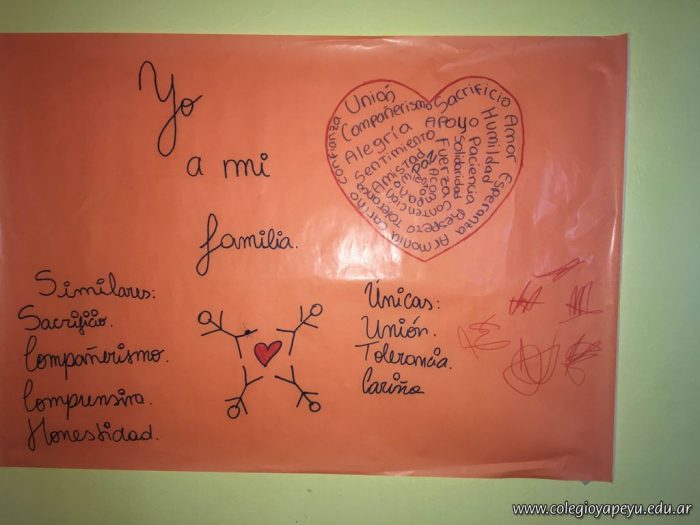 Yo
a mi
familia.
confianza Unión
Compañerismo Sacrificio Amor
Alegría Apoyo Humildad
Sentimiento Paciencia
Amistad Paz Fuerza Solidaridad
Tolerancia Contención Esperanza
Cariño Respeto
Armonía
Similares:
Sacrificio.
Compañerismo.
Comprensiva.
Honestidad.
Únicas:
Unión.
Tolerancia.
Cariño
www.colegioyapeyu.edu.ar